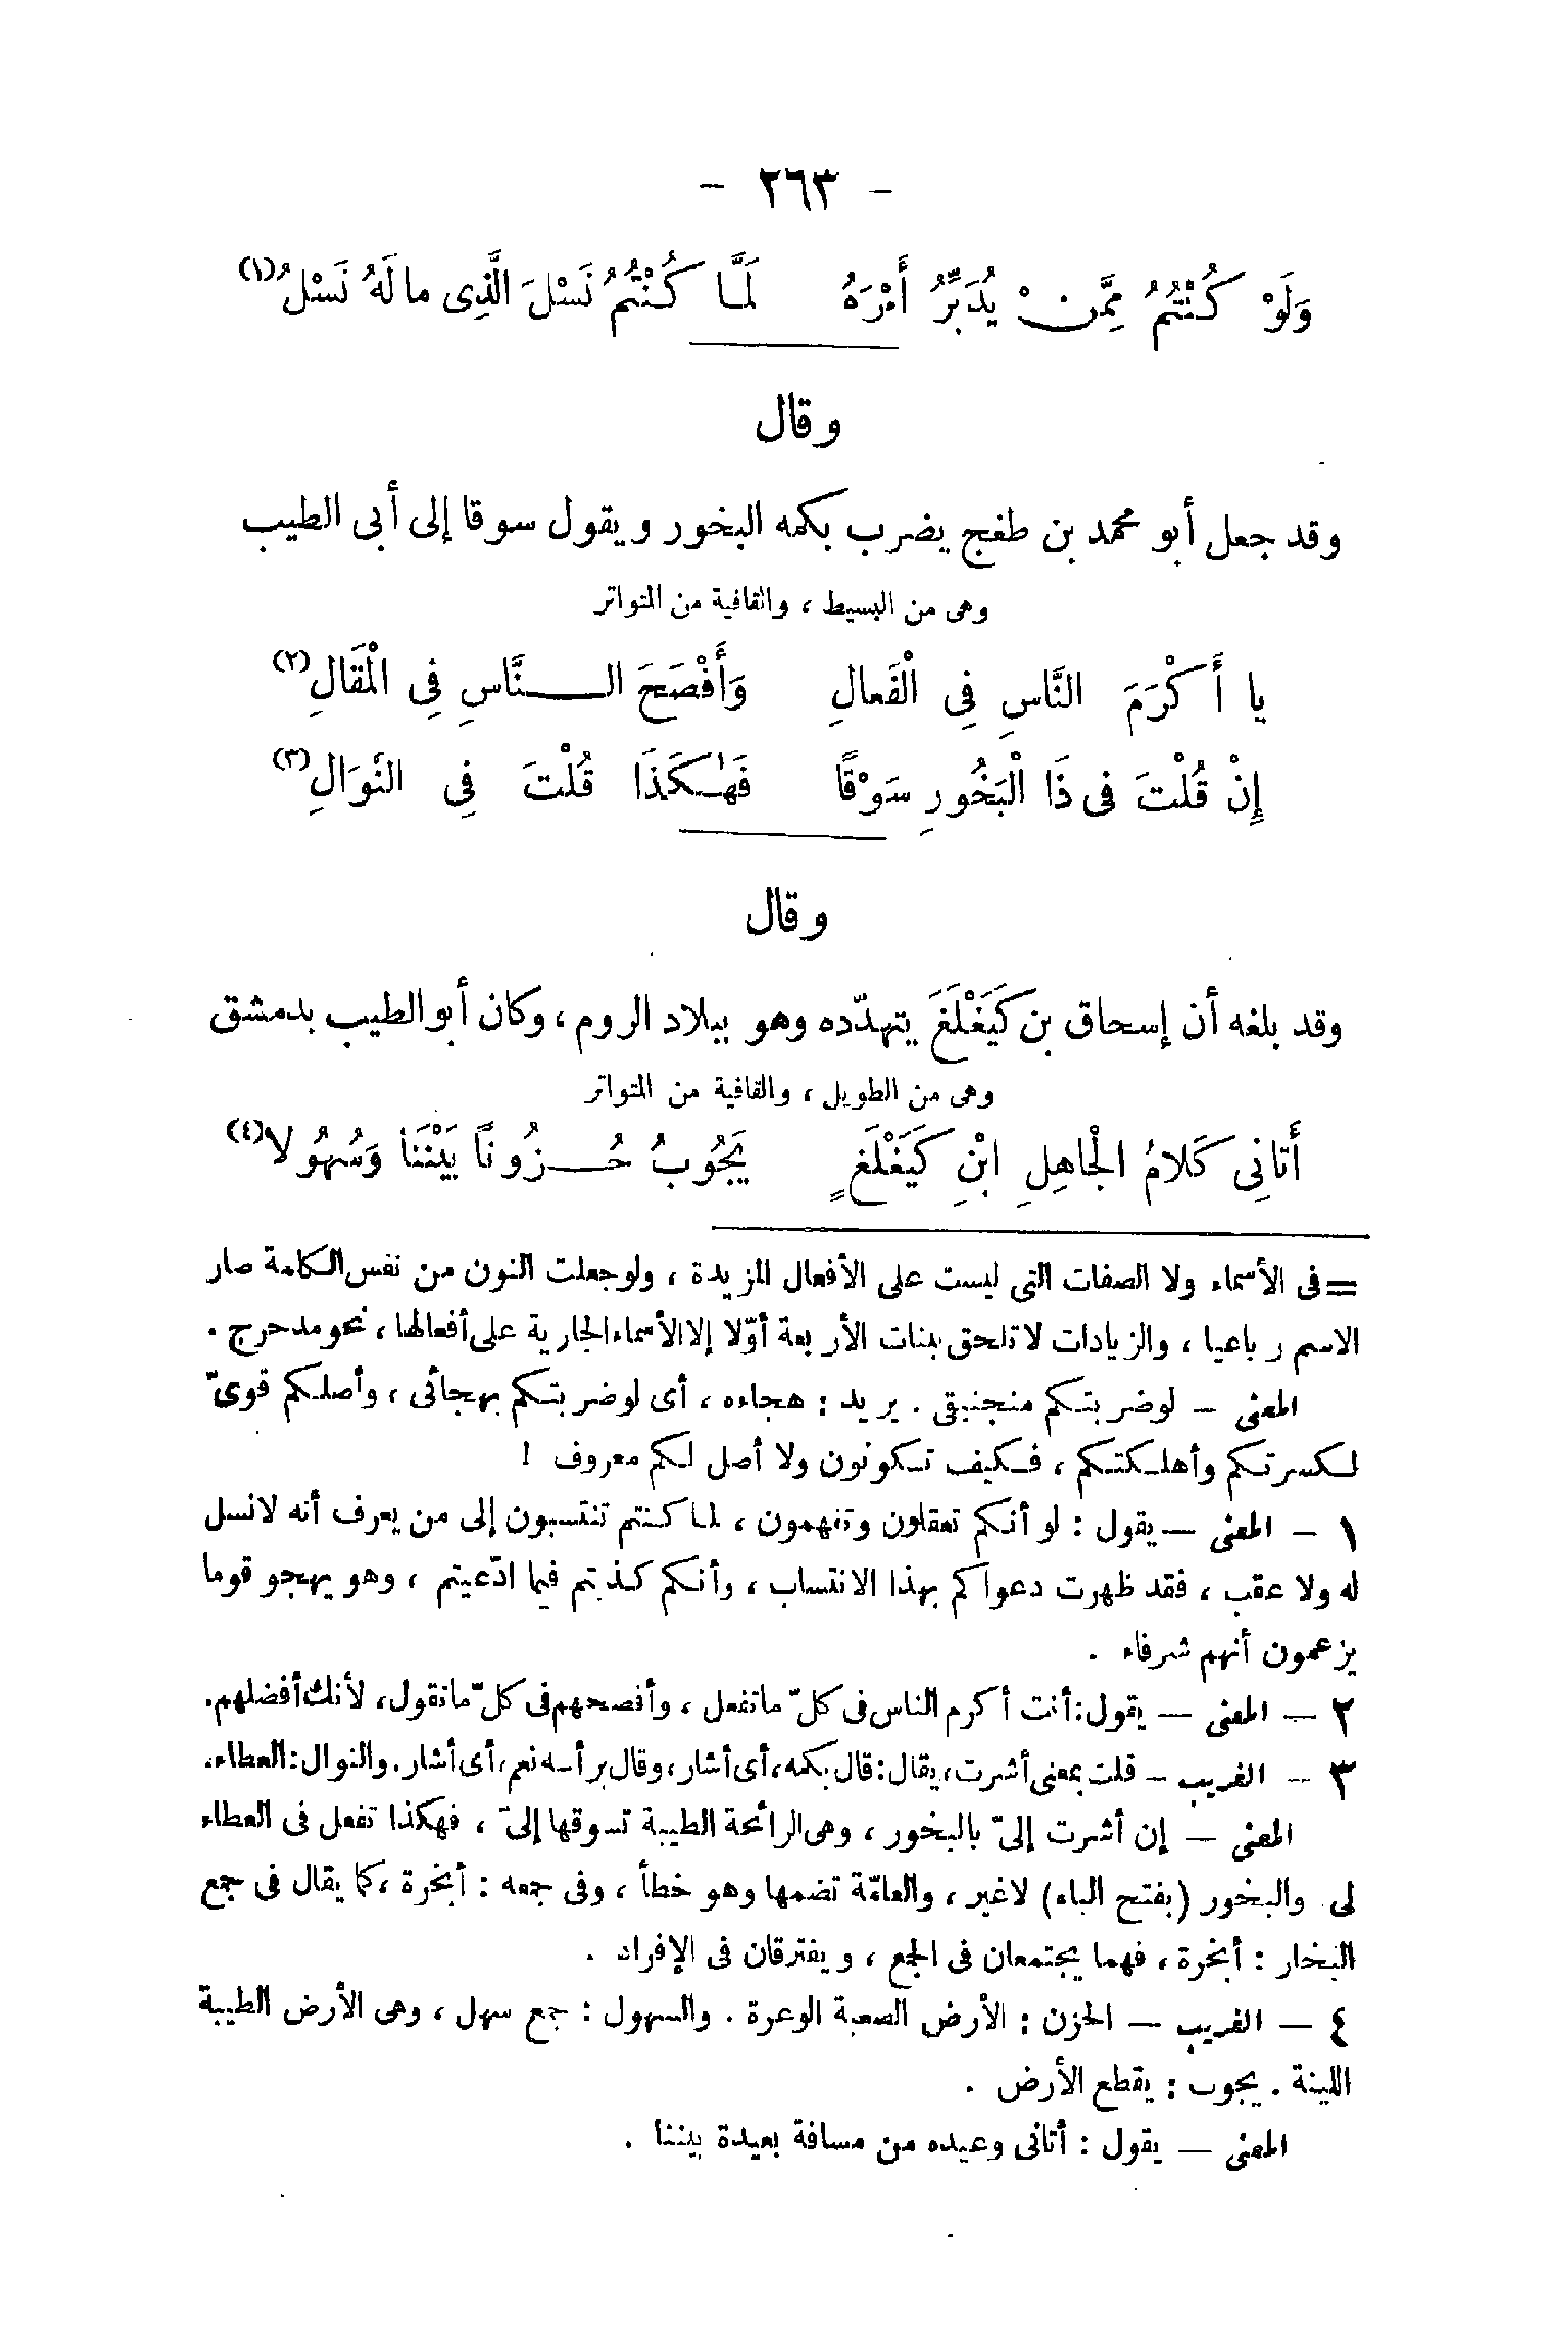 - ٢٦٣ -
وَلَوْ كُنْتُمُ مِمَّنْ يُدَبِّرُ أَمْرَهُ لَمَّا كُنْتُمُ نَسْلَ الَّذِى مالَهُ نَسْلُ(١)
وقال
وقد جعل أبو محمد بن طغج يضرب بكمه البخور ويقول سوقا إلى أبى الطيب
وهى من البسيط ، والقافية من المتواتر
يا أَكْرَمَ النَّاسِ فِى الْفَعالِ وَأَفْصَحَ النَّاسِ فِى الْمَقَالِ(٢)
إِنْ قُلْتَ فى ذَا الْبَخُورِ سَوْقًا فَهٰكَذَا قُلْتَ فِى النَّوَالِ(٣)
وقال
وقد بلغه أن إسحاق بن كَيَغْلَغَ يتهدّده وهو ببلاد الروم، وكان أبو الطيب بدمشق
وهى من الطويل ، والقافية من المتواتر
أَتانِى كَلامُ الْجاهِلِ ابْنِ كَيَغْلَغٍ يَجُوبُ حُزُونًا بَيْنَنَا وَسُهُولا(٤)
= فى الأسماء ولا الصفات التى ليست على الأفعال المزيدة ، ولوجعلت النون من نفس الكلمة صار
الاسم رباعيا ، والزيادات لاتلحق بنات الأربعة أوّلا إلا الأسماء الجارية على أفعالها ، نحو مدحرج .
المعنى - لوضربتكم منجنيقى . يريد : هجاءه ، أى لوضربتكم بهجائى ، وأصلكم قوىّ
لكسرتكم وأهلكتكم ، فكيف تكونون ولا أصل لكم معروف !
١ - المعنى — يقول : لو أنكم تعقلون وتفهمون ، لما كنتم تنتسبون إلى من يعرف أنه لانسل
له ولا عقب ، فقد ظهرت دعواكم بهذا الانتساب ، وأنكم كذبتم فيما ادّعيتم ، وهو يهجو قوما
يزعمون أنهم شرفاء .
٢ — المعنى — يقول: أنت أكرم الناس فى كلّ ماتفعل ، وأفصحهم فى كلّ ماتقول، لأنك أفضلهم.
٣ - الغريب - قلت بمعنى أشرت، يقال: قال بكمه، أى أشار، وقال برأسه نعم، أى أشار. والنوال: العطاء.
المعنى — إن أشرت إلىّ بالبخور ، وهى الرائحة الطيبة تسوقها إلىّ ، فهكذا تفعل فى العطاء
لى والبخور (بفتح الباء) لاغير ، والعامّة تضمها وهو خطأ ، وفى جمعه : أبخرة ، كما يقال فى جمع
البخار : أبخرة ، فهما يجتمعان فى الجمع ، ويفترقان فى الإفراد .
٤ — الغريب — الحزن : الأرض الصعبة الوعرة . والسهول : جمع سهل ، وهى الأرض الطيبة
اللينة . يجوب : يقطع الأرض .
المعنى — يقول : أتانى وعيده من مسافة بعيدة بيننا .